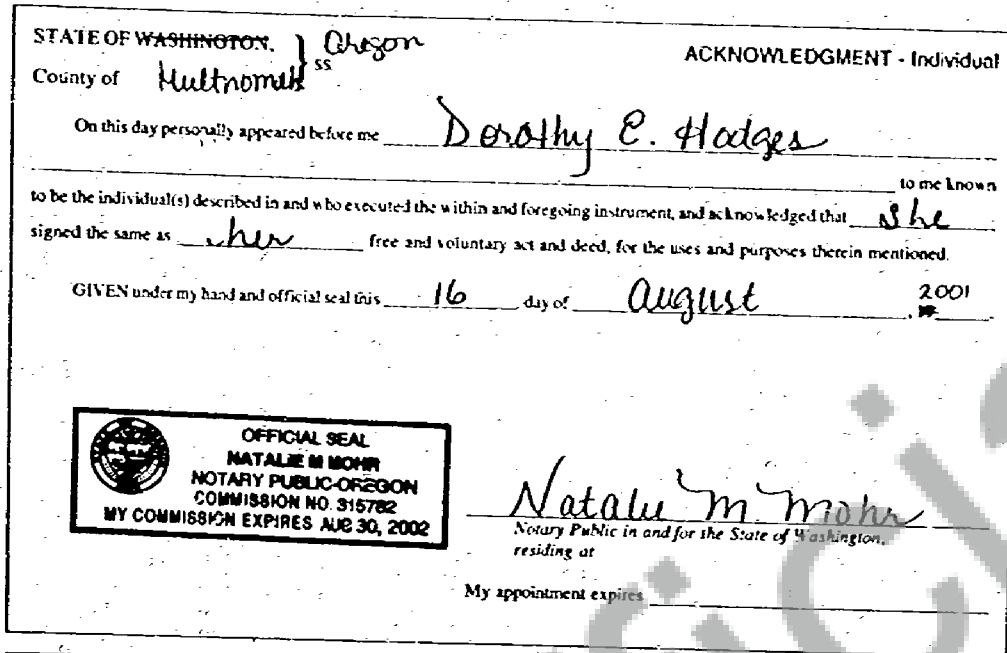 STATE OF WASHINGTON, } ss Oregon
ACKNOWLEDGMENT - Individual
County of Multnomah
On this day personally appeared before me Dorothy E. Hodges
to me known
to be the individual(s) described in and who executed the within and foregoing instrument, and acknowledged that she
signed the same as her free and voluntary act and deed, for the uses and purposes therein mentioned.
GIVEN under my hand and official seal this 16 day of August, 2001
OFFICIAL SEAL
NATALIE M MOHR
NOTARY PUBLIC-OREGON
COMMISSION NO. 315782
MY COMMISSION EXPIRES AUG 30, 2002
Natalie M. Mohr
Notary Public in and for the State of Washington,
residing at
My appointment expires